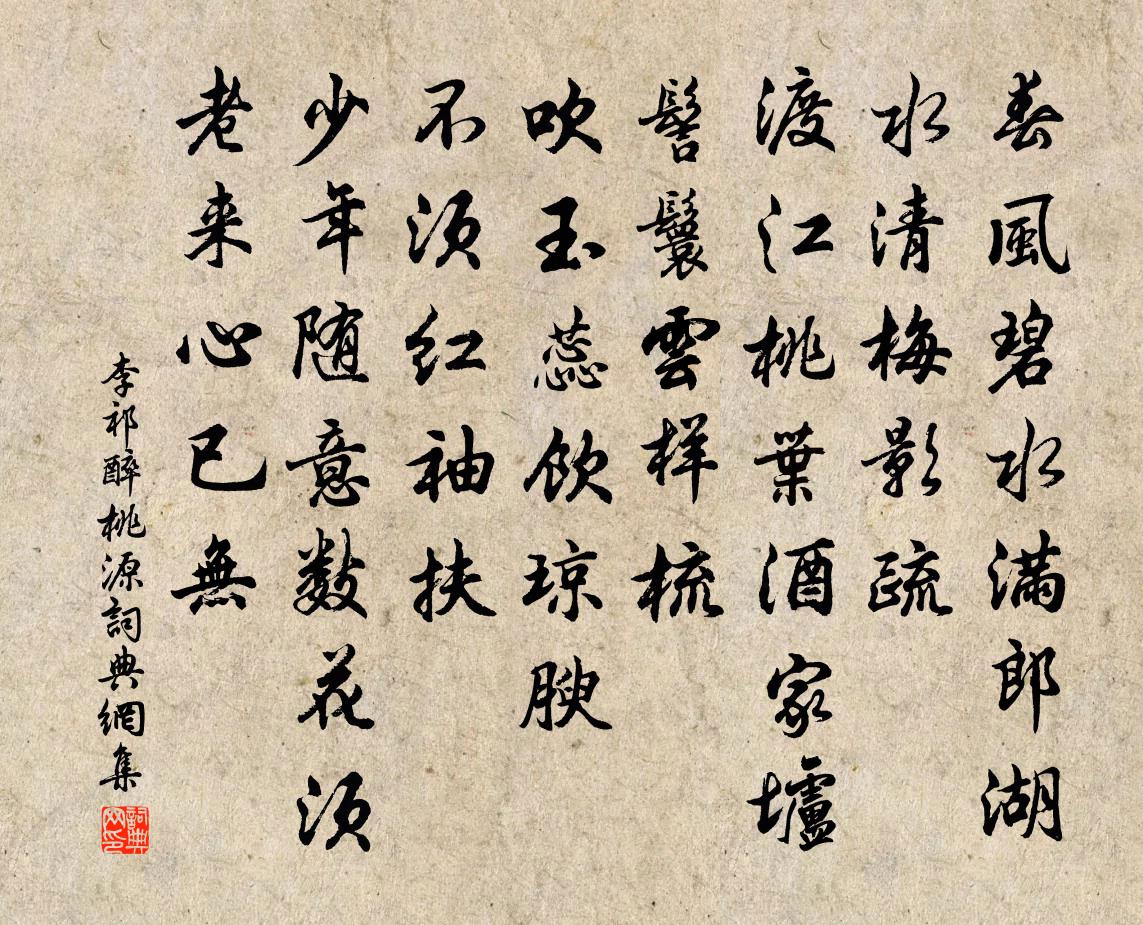 春風碧水滿郎湖
水清梅影疏
渡江桃葉酒家壚
髻鬟雲樣梳
吹玉蕊飲瓊腴
不須紅袖扶
少年隨意數花須
老來心已無
李祁醉桃源詞典網集
詞典網印